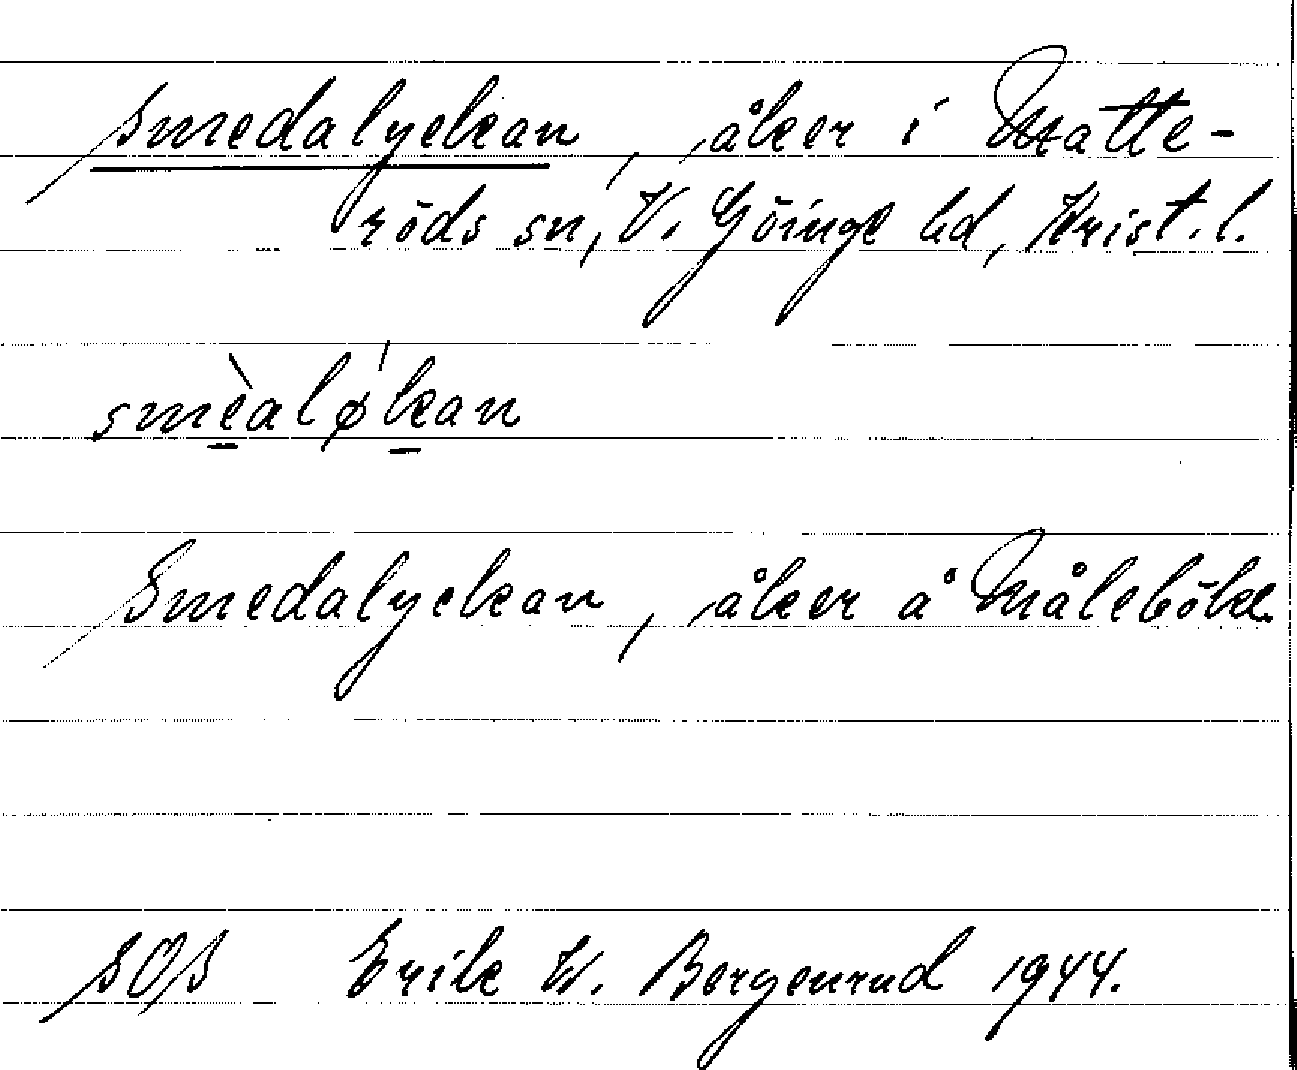 Smedalyckan, åker i Matte-
röds sn, V. Göinge hd, Krist. l.
smèalø'kan
Smedalyckan, åker å Målebök
SOS Erik W. Bergenrud 1944.